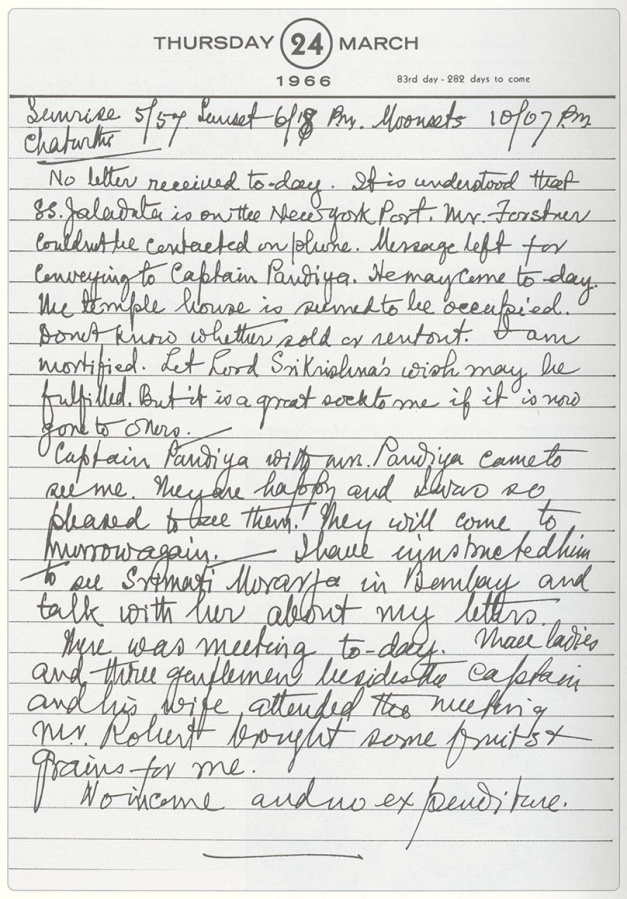 THURSDAY 24 MARCH
1966 83rd day - 282 days to come
Sunrise 5/57 Sunset 6/18 P.m. Moonsets 10/07 P.m.
Chaturthi
No letter received to-day. It is understood that
SS. Jaladuta is on the New york Port. Mr. Forstner
couldnt be contacted on phone. Message left for
conveying to Captain Pandiya. He may come to-day.
The temple house is seemed to be occupied.
Don't know whether sold or rentout. I am
mortified. Let Lord Sri Krishna's wish may be
fulfilled. But it is a great sock to me if it is now
gone to others.
Captain Pandiya with mrs. Pandiya came to
see me. They are happy and I was so
pleased to see them. They will come to
murrow again. I have iinstructed him
to see Srimati Morarja in Bombay and
talk with her about my letters.
There was meeting to-day. Three ladies
and three gentlemen besides the Captain
and his wife attended the meeting
Mr. Robert brought some fruits &
grains for me.
No income and no expenditure.